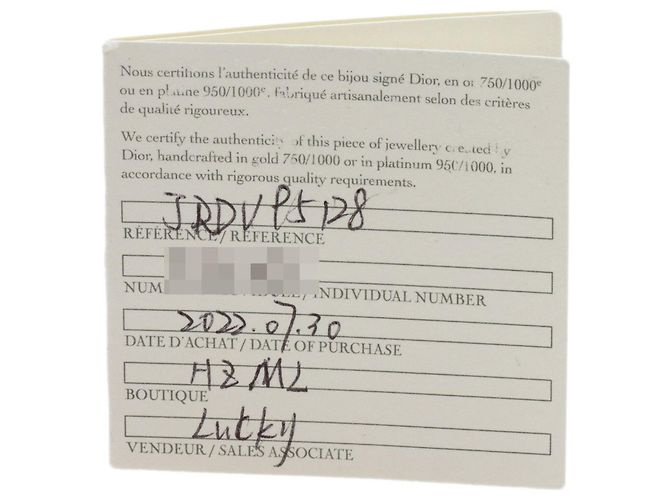 Nous certifions l'authenticité de ce bijou signé Dior, en or 750/1000e
ou en platine 950/1000e, fabriqué artisanalement selon des critères
de qualité rigoureux.
We certify the authenticity of this piece of jewellery created by
Dior, handcrafted in gold 750/1000 or in platinum 950/1000, in
accordance with rigorous quality requirements.
JRDV95128
RÉFÉRENCE / REFERENCE
INDIVIDUAL NUMBER
2022.07.30
DATE D'ACHAT / DATE OF PURCHASE
HZML
BOUTIQUE
Lucky
VENDEUR / SALES ASSOCIATE